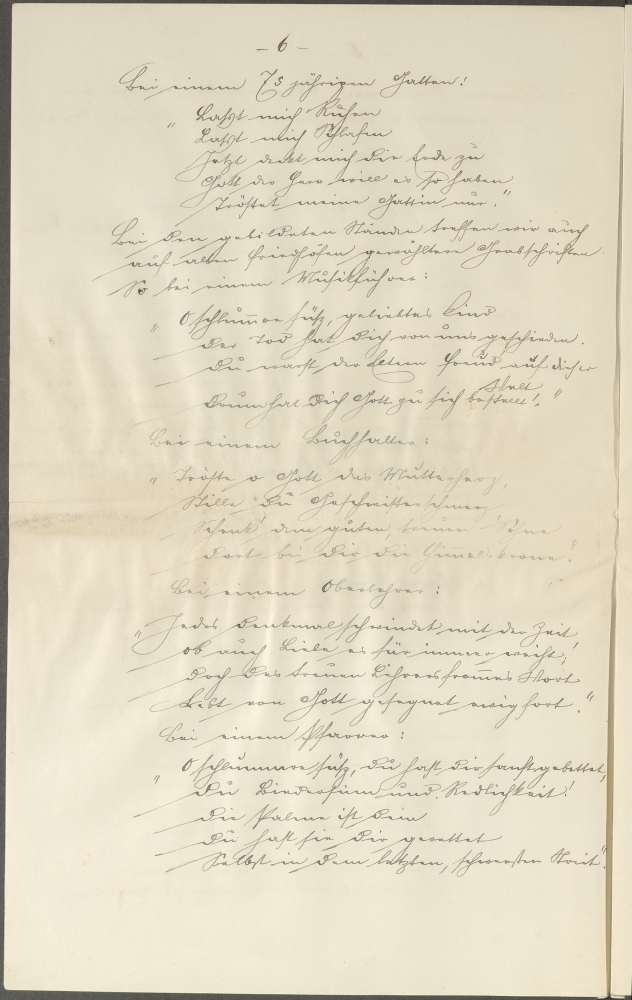 – 6 –
Bei einem 73 jährigen Gatten:
„Laßt mich Ruhen
Laßt mich Schlafen
Jetzt deckt mich die Erde zu
Gott der Herr will es so haben
Tröstet meine Gattin nur."
Bei den gebildeten Ständen treffen wir auch
auf alten Friedhöfen gewähltere Grabschriften.
So bei einem Musikführer:
„O schlummre süß, geliebtes Kind
Der Tod hat Dich von uns geschieden.
Du warst der Eltern Freud auf dieser
Welt
Drum hat Dich Gott zu sich bestellt!"
Bei einem Buchhalter:
„Tröste o Gott das Mutterherz,
Stille Du Geschwisterschmerz
Schenk' dem guten, treuen Sohne
Dort bei Dir die Himmelskrone."
Bei einem Oberlehrer:
„Jedes Denkmal schwindet mit der Zeit
ob auch Liebe es für immer weiht,
Doch des treuen Lehrers frommes Wort
Lebt von Gott gesegnet ewig fort."
Bei einem Pfarrer:
„O schlummre süß, Du hast Dir sanft gebettet,
Du Biedersinn und Redlichkeit!
Die Palme ist Dein
Du hast sie Dir gerettet
Selbst in dem letzten, schwersten Streit."